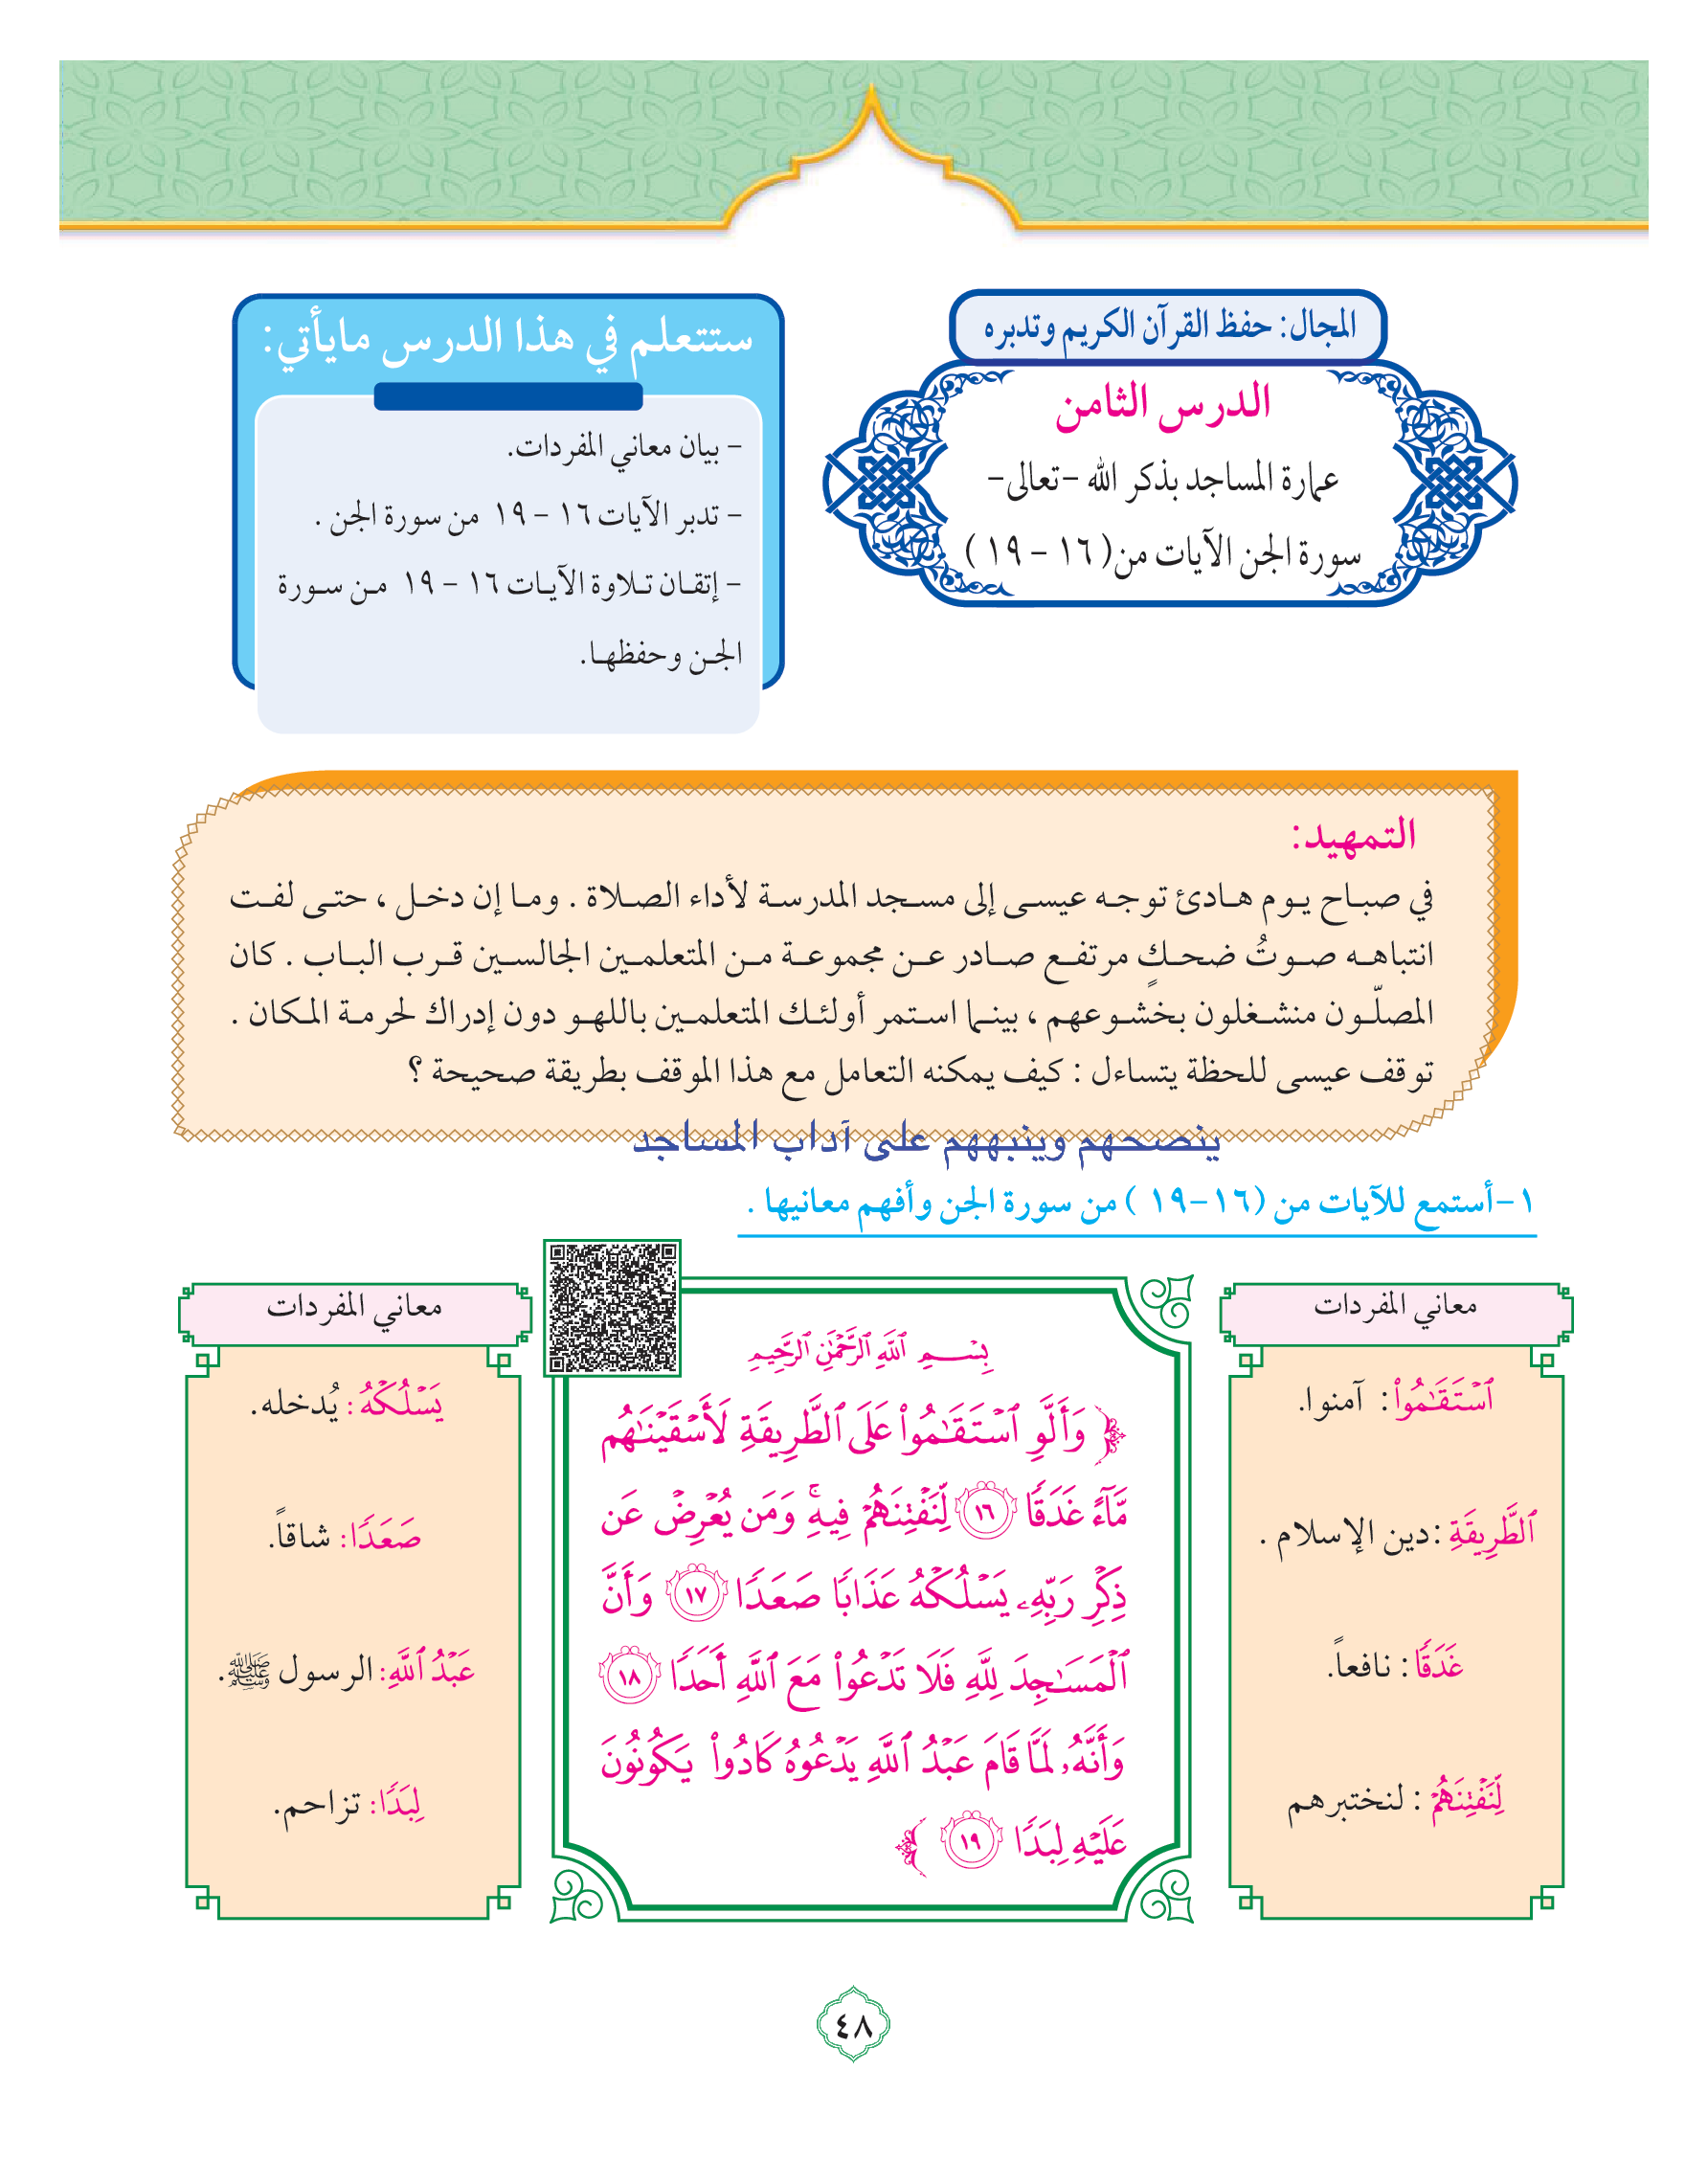 المجال: حفظ القرآن الكريم وتدبره
الدرس الثامن
عمارة المساجد بذكر الله -تعالى-
سورة الجن الآيات من( ١٦ - ١٩ )
ستتعلم في هذا الدرس مايأتي:
- بيان معاني المفردات.
- تدبر الآيات ١٦ - ١٩ من سورة الجن .
- إتقـان تـلاوة الآيـات ١٦ - ١٩ مـن سـورة
الجـن وحفظهـا.
التمهيد:
في صبـاح يـوم هـادئ توجـه عيسـى إلى مسـجد المدرسـة لأداء الصـلاة . ومـا إن دخـل ، حتـى لفـت
انتباهـه صـوتُ ضحـكٍ مرتفـع صـادر عـن مجموعـة مـن المتعلمـين الجالسـين قـرب البـاب . كان
المصلّـون منشـغلون بخشـوعهم ، بينـما اسـتمر أولئـك المتعلمـين باللهـو دون إدراك لحرمـة المـكان .
توقف عيسى للحظة يتساءل : كيف يمكنه التعامل مع هذا الموقف بطريقة صحيحة ؟
ينصحهم وينبههم على آداب المساجد
١-أستمع للآيات من (١٦-١٩ ) من سورة الجن وأفهم معانيها .
معاني المفردات
ٱسۡتَقَٰمُواْ : آمنوا.
ٱلطَّرِيقَةِ :دين الإسلام .
غَدَقٗا : نافعاً.
لِّنَفۡتِنَهُمۡ : لنختبرهم
بِسۡمِ ٱللَّهِ ٱلرَّحۡمَٰنِ ٱلرَّحِيمِ
﴿ وَأَلَّوِ ٱسۡتَقَٰمُواْ عَلَى ٱلطَّرِيقَةِ لَأَسۡقَيۡنَٰهُم
مَّآءً غَدَقٗا ١٦ لِّنَفۡتِنَهُمۡ فِيهِۚ وَمَن يُعۡرِضۡ عَن
ذِكۡرِ رَبِّهِۦ يَسۡلُكۡهُ عَذَابٗا صَعَدٗا ١٧ وَأَنَّ
ٱلۡمَسَٰجِدَ لِلَّهِ فَلَا تَدۡعُواْ مَعَ ٱللَّهِ أَحَدٗا ١٨
وَأَنَّهُۥ لَمَّا قَامَ عَبۡدُ ٱللَّهِ يَدۡعُوهُ كَادُواْ يَكُونُونَ
عَلَيۡهِ لِبَدٗا ١٩ ﴾
معاني المفردات
يَسۡلُكۡهُ : يُدخله.
صَعَدٗا: شاقاً.
عَبۡدُ ٱللَّهِ: الرسول ﷺ.
لِبَدٗا: تزاحم.
٤٨